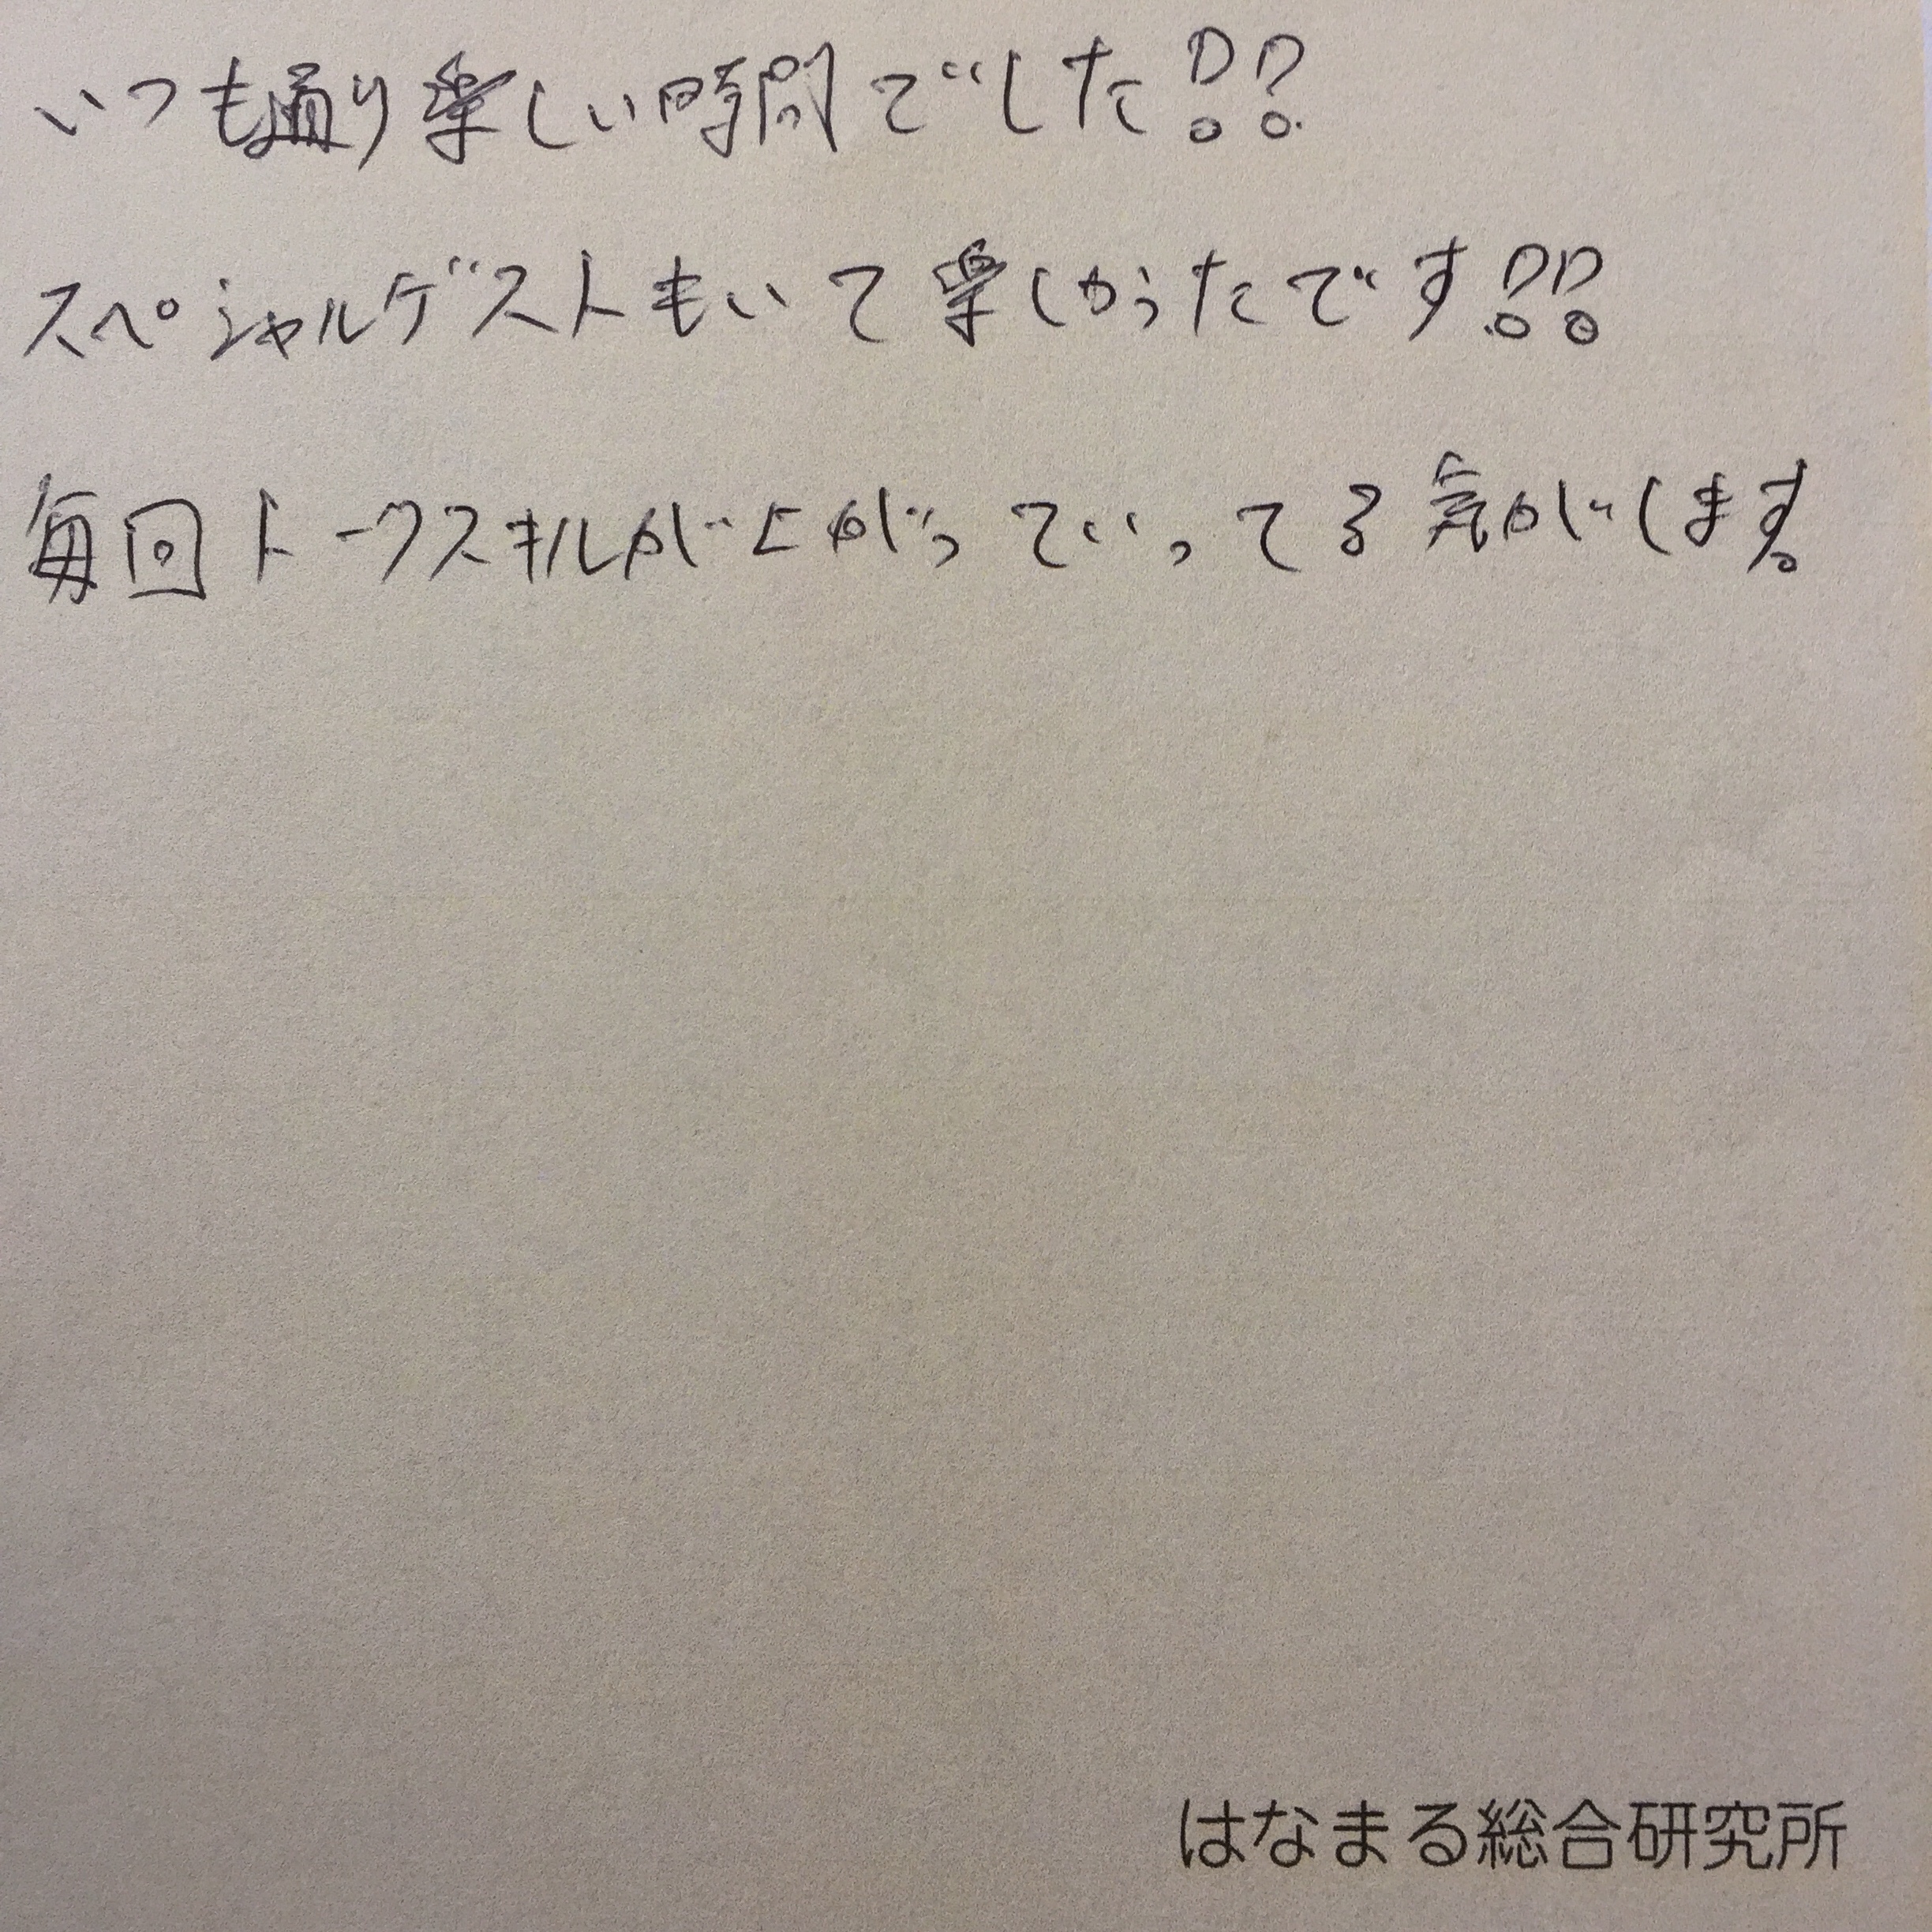 いつも通り楽しい時間でした!!
スペシャルゲストもいて楽しかったです!!
毎回トークスキルが上がっていってる気がします。
はなまる総合研究所